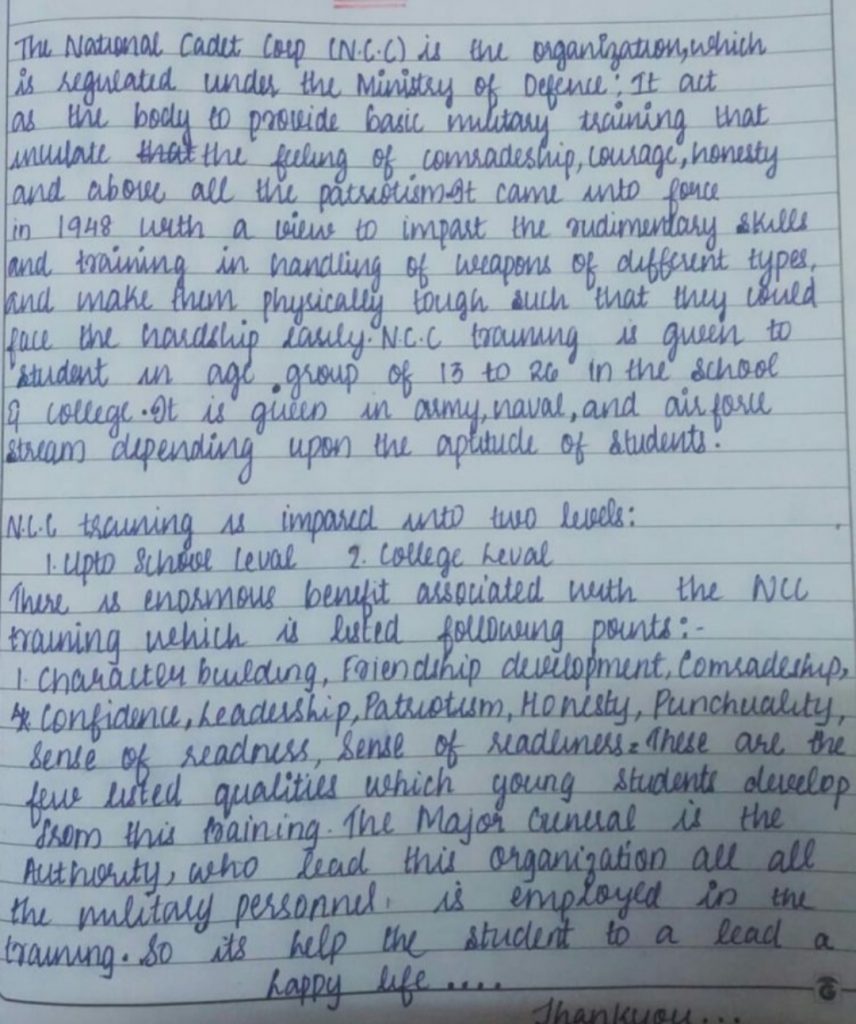 The National Cadet Corp (N.C.C) is the organization, which
is regulated under the Ministry of Defence; It act
as the body to provide basic military training that
inculate that the feeling of comradeship, courage, honesty
and above all the patriotism. It came into force
in 1948 with a view to impart the rudimentary skills
and training in handling of weapons of different types,
and make them physically tough such that they could
face the hardship easily. N.C.C training is given to
student in age group of 13 to 26 in the school
& college. It is given in army, naval, and air force
stream depending upon the aptitude of students.
N.C.C training is impared into two levels:
1. Upto School Leval 2. College Leval
There is enormous benefit associated with the NCC
training which is listed following points:-
1. Character building, Friendship development, Comradeship,
Confidence, Leadership, Patriotism, Honesty, Punchuality,
Sense of readness, Sense of readliness. These are the
few listed qualities which young students develop
from this training. The Major General is the
Authority, who lead this organization all all
the military personnel. is employed in the
training. So its help the student to a lead a
happy life ....
Thankyou...